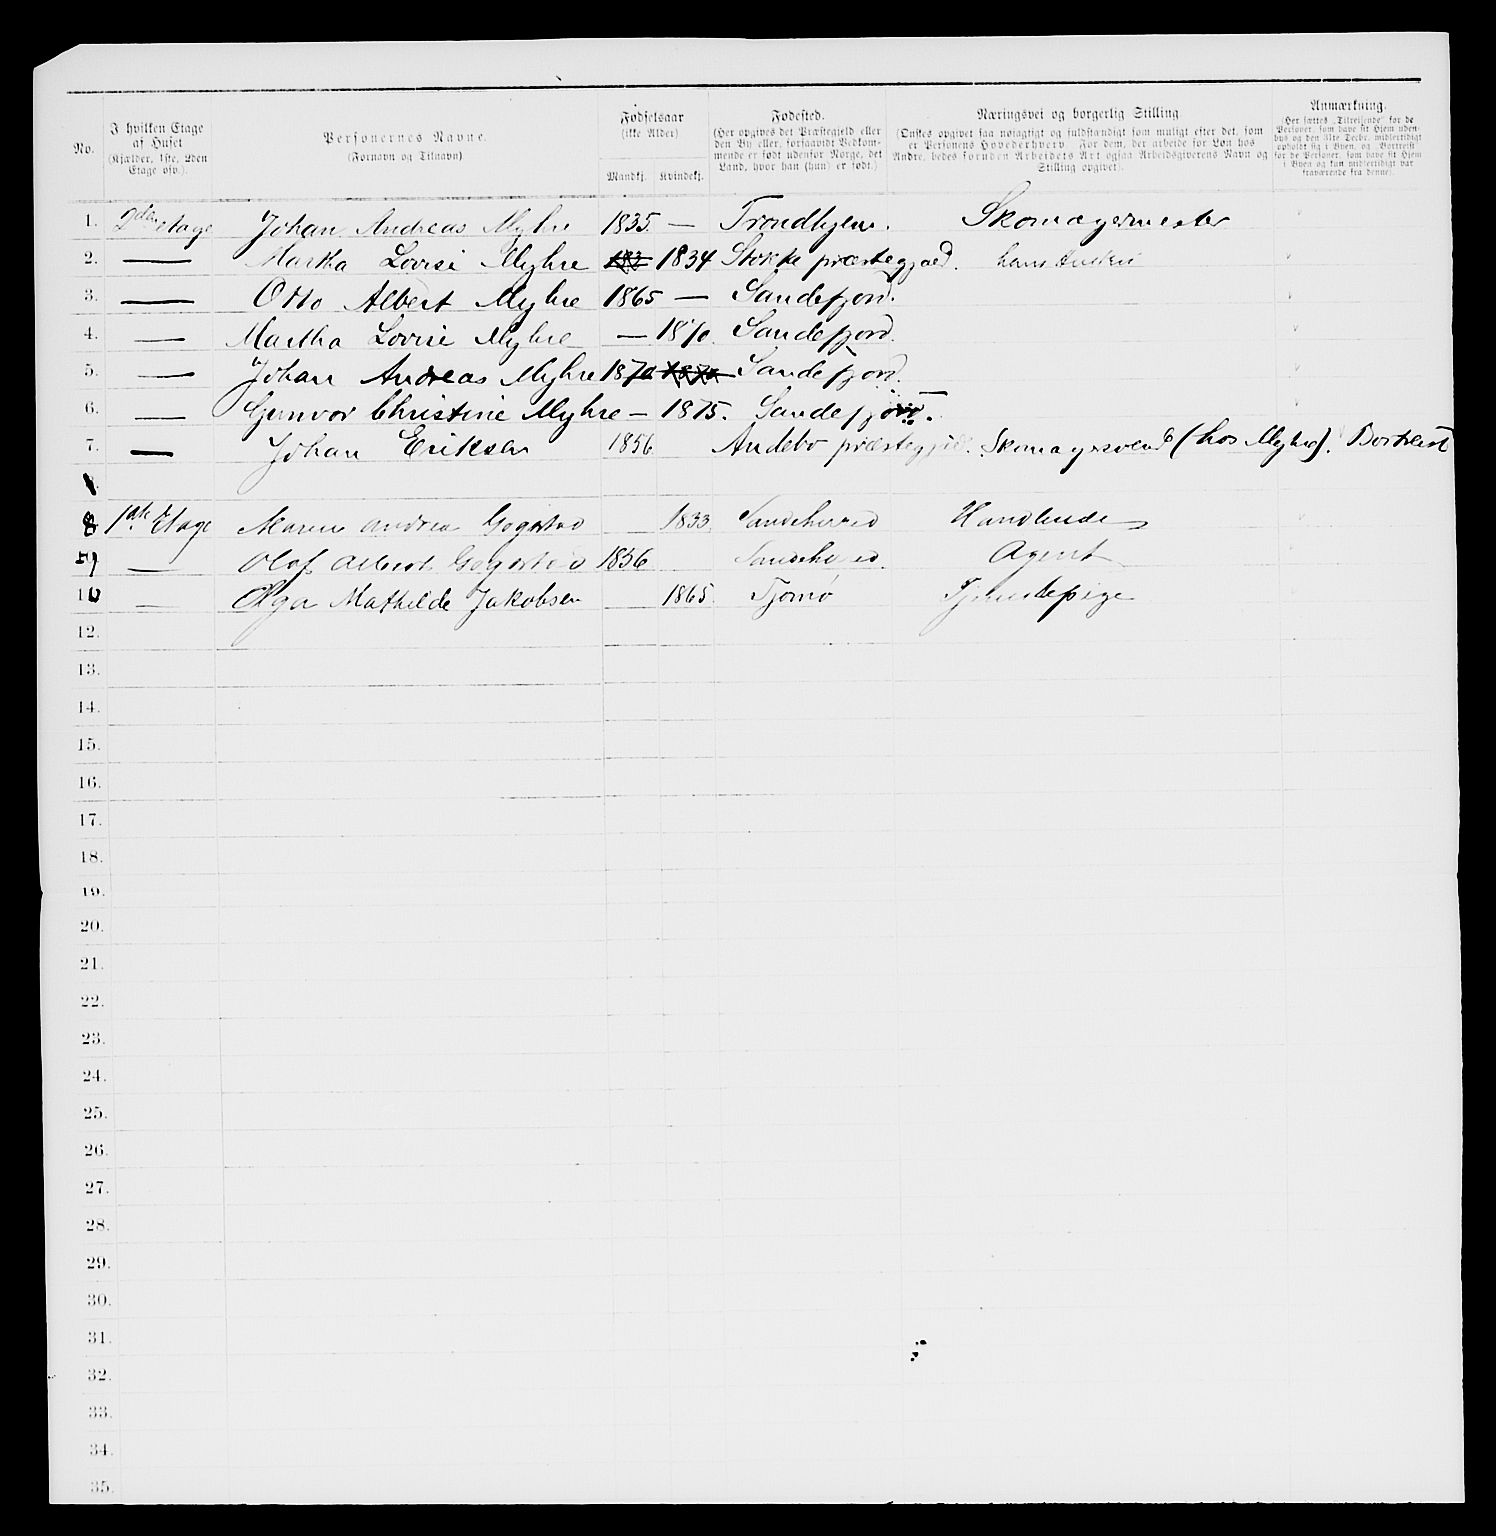 No. I hvilken Etage af Huset (Kjælder, 1ste, 2den Etage osv.). Personernes Navne. (Fornavn og Tilnavn) Fødselsaar (ikke Alder) Mandkj. Kvindekj. Fødested. (Her opgives det Præstegjeld eller den By eller, forsaavidt Vedkommende er født udenfor Norge, det Land, hvor han (hun) er født.) Næringsvei og borgerlig Stilling (Ønskes opgivet saa nøiagtigt og fuldstændigt som muligt efter det, som er Personens Hovederhverv. For dem, der arbeide for Løn hos Andre, bedes foruden Arbeidets Art ogsaa Arbeidsgiverens Navn og Stilling opgivet). Anmærkning. (Her sættes „Tilreisende" for de Personer, som have sit Hjem udenbys og den 31te Decbr. midlertidigt opholdt sig i Byen, og „Bortreist" for de Personer, som have sit Hjem i Byen og kun midlertidigt var fraværende fra denne).
1. 2den etage Johan Andreas Myhre 1835. — Trondhjem. Skomagermester
2. — Martha Lovise Myhre 183 1834 Stokke præstegjæld. hans Hustru
3. — Otto Albert Myhre 1865 — Sandefjord.
4. — Martha Lovise Myhre — 1870. Sandefjord.
5. — Johan Andreas Myhre 1870 Sandefjord.
6. — Gunvor Christine Myhre — 1875. Sandefjord.
7. — Johan Eriksen 1856 Andebo præstegjeld. Skomagersvend (hos Myhre). Bortreist
8 1ste Etage Maren Andrea Gogstad — 1833. Sandeherred Handlende
9 — Olaf Albert Gogstad 1856 Sandeherred. Agent
10 — Olga Mathilde Jakobsen — 1865. Tjømø Tjenestepige
12.
13.
14.
15.
16.
17.
18.
19.
20.
21.
22.
23.
24.
25.
26.
27.
28.
29.
30.
31.
32.
33.
34.
35.